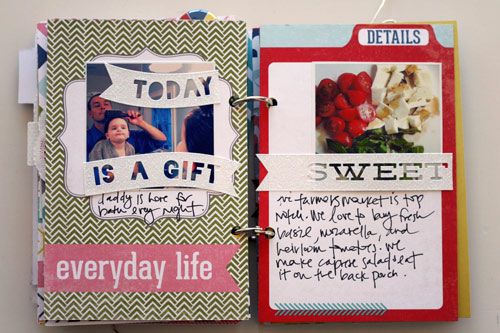 TODAY
IS A GIFT
daddy is home for
bath every night
everyday life
DETAILS
SWEET
farmers market is top
notch. We love to buy fresh
basil, mozarella, and
heirloom tomatoes. we
make caprese salad & eat
it on the back porch.